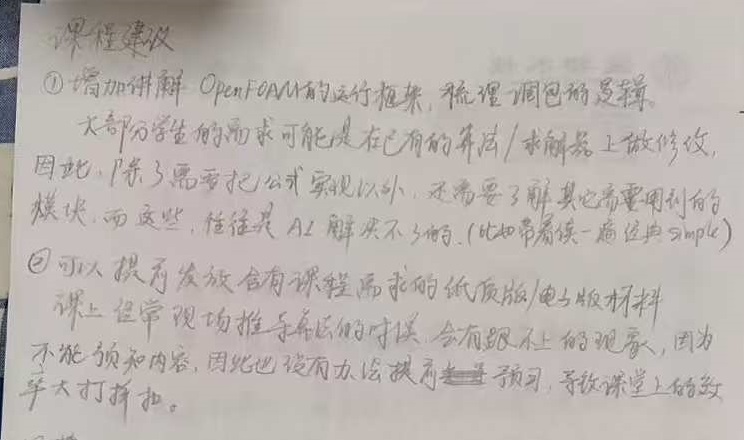 课程建议
① 增加讲解 OpenFOAM的运行框架，梳理调包的逻辑。
大部分学生的需求可能是在已有的算法/求解器上做修改，
因此，除了需要把公式实现以外，还需要了解其它需要用到的
模块，而这些，往往是 AI 解决不了的。(比如带着读一遍经典 simple)
② 可以提前发放含有课程需求的纸质版/电子版材料
课上经常现场推导算法的时候，会有跟不上的现象，因为
不能预知内容，因此也没有办法提前预习，导致课堂上的效
率大打折扣。